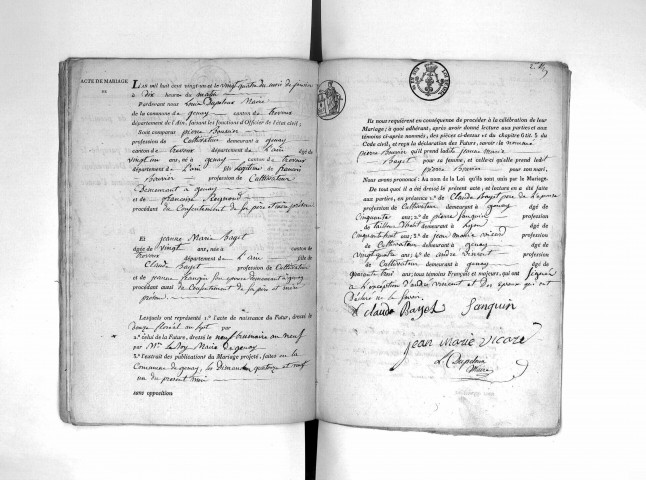 ACTE DE MARIAGE
L'AN mil huit cent vingt un et le vingt quatre du mois de janvier
à dix heures du matin
Pardevant nous Louis Dupeloux Maire
de la commune de genay canton de trevoux
département de l'Ain, faisant les fonctions d'Officier de l'état civil;
Sont comparus pierre Bouvier
profession de Cultivateur demeurant à genay
canton de trevoux département de l'ain âgé de
vingt un ans, né à genay canton de trevoux
département de l'ain fils légitime de françois
Bouvier profession de Cultivateur
Demeurant à genay
et de françoise
procédant du Consentement de ses père et mère présens
Et jeanne Marie Bayet
âgée de vingt ans, née à canton de
trevoux département de l'ain fille de
Claude Bayet profession de Cultivateur
et de jeanne demeurant à genay
procédant aussi du Consentement de ses père et mère
présens
Lesquels ont représenté 1.º l'acte de naissance du Futur, dressé le
douze floréal an sept par
2.º celui de la Future, dressé le neuf brumaire an neuf
par Mr. Maire de genay
3.º l'extrait des publications du Mariage projeté, faites en la
Commune de genay, les dimanches quatorze et vingt
un du présent mois
sans opposition
Ils nous requièrent en conséquence de procéder à la célébration de leur
Mariage; à quoi adhérant, après avoir donné lecture aux parties et aux
témoins ci-après nommés, des pièces ci-dessus et du chapitre 6 tit. 5 du
Code civil, et reçu la déclaration des Futurs, savoir le nommé
pierre Bouvier qu'il prend ladite jeanne Marie
Bayet pour sa femme, et celle-ci qu'elle prend ledit
pierre Bouvier pour son mari,
Nous avons prononcé: Au nom de la Loi qu'ils sont unis par le Mariage.
De tout quoi il a été dressé le présent acte, et lecture en a été faite
aux parties, en présence 1.º de Claude Bayet père de l'épouse
profession de Cultivateur demeurant à genay âgé de
cinquante ans; 2.º de pierre Sanquin profession
de tailleur d'habit demeurant à Lyon âgé de
Cinquante huit ans; 3.º de jean marie vicard profession
de Cultivateur demeurant à genay âgé de
vingt quatre ans; 4.º de andré vincent profession
de Cultivateur demeurant à genay âgé de
quarante trois ans; tous témoins Français et majeurs, qui ont Signés
à l'exception d'andré vincent et des époux qui ont
Déclaré ne le Savoir.
Claude Bayet Sanquin
jean Marie vicard
L. Dupeloux
Maire